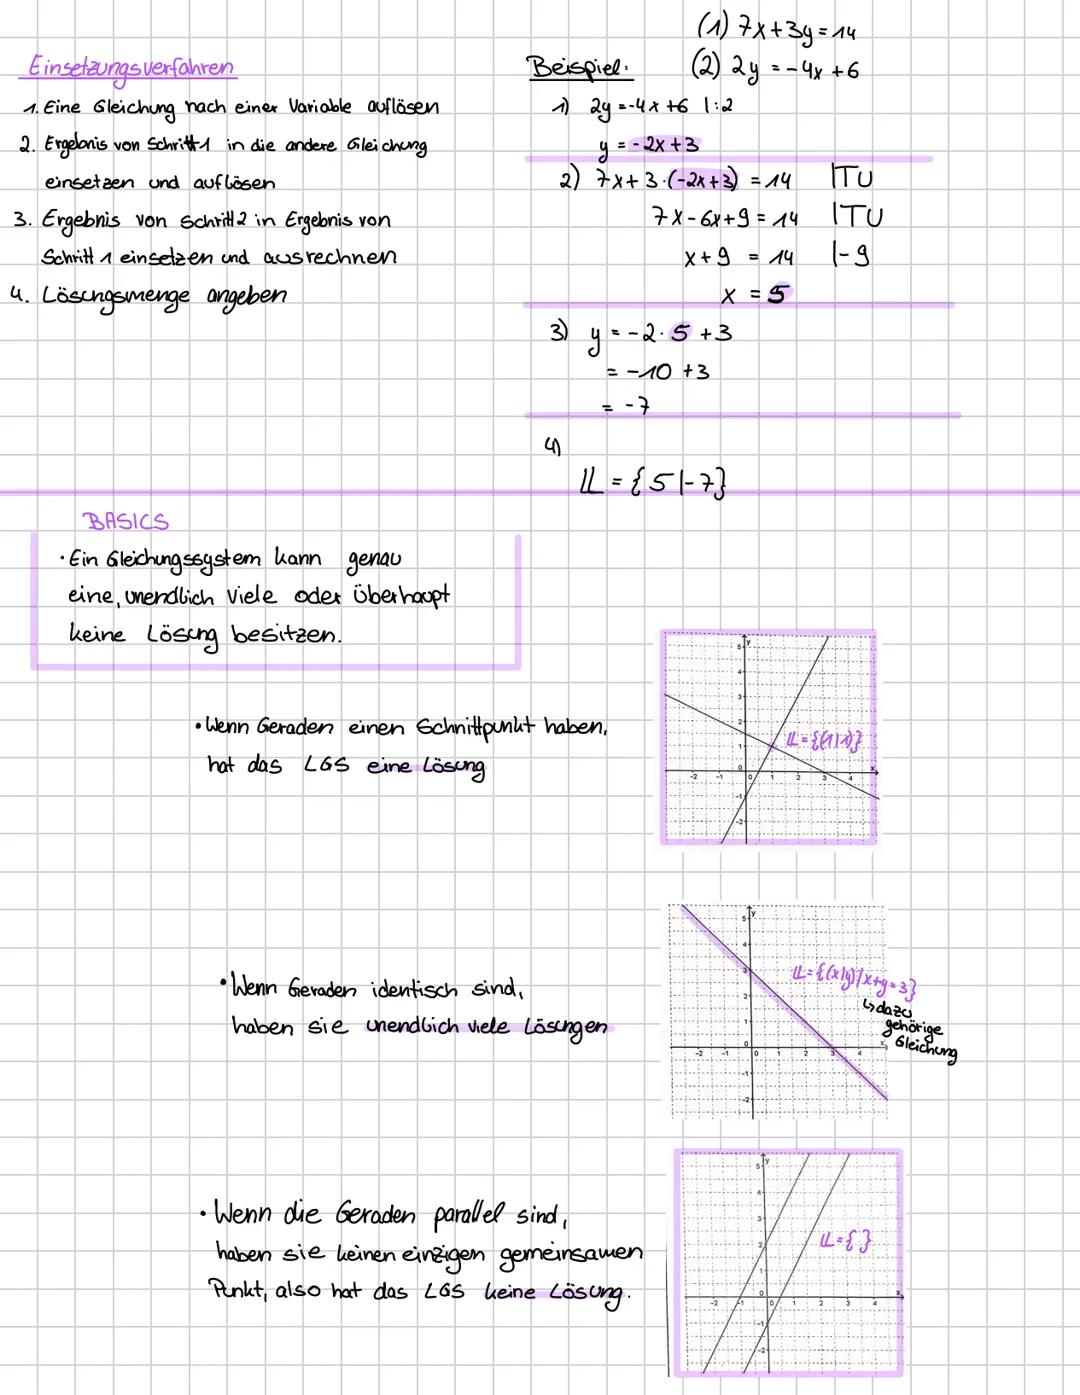 Einsetzungsverfahren
1. Eine Gleichung nach einer Variable auflösen
2. Ergebnis von Schritt 1 in die andere Gleichung
einsetzen und auflösen
3. Ergebnis von Schritt 2 in Ergebnis von
Schritt 1 einsetzen und ausrechnen
4. Lösungsmenge angeben
Beispiel:
(1) 7x+3y=14
(2) 2y=-4x+6
1) 2y=-4x+6 |:2
y=-2x+3
2) 7x+3·(-2x+3)=14 |TU
7x-6x+9=14 |TU
x+9=14 |-9
x=5
3) y=-2·5+3
=-10+3
=-7
4)
𝕃={5|-7}
BASICS
·Ein Gleichungssystem kann genau
eine, unendlich viele oder überhaupt
keine Lösung besitzen.
·Wenn Geraden einen Schnittpunkt haben,
hat das LGS eine Lösung
y
5
4
3
2
1
0
-1
-2
-2 -1 0 1 2 3 4 x
𝕃={(1|1)}
·Wenn Geraden identisch sind,
haben sie unendlich viele Lösungen
y
5
4
3
2
1
0
-1
-2
-2 -1 0 1 2 3 4 x
𝕃={(x|y)|x+y=3}
↳dazu
gehörige
Gleichung
·Wenn die Geraden parallel sind,
haben sie keinen einzigen gemeinsamen
Punkt, also hat das LGS keine Lösung.
y
5
4
3
2
1
0
-1
-2
-2 -1 0 1 2 3 4 x
𝕃={ }